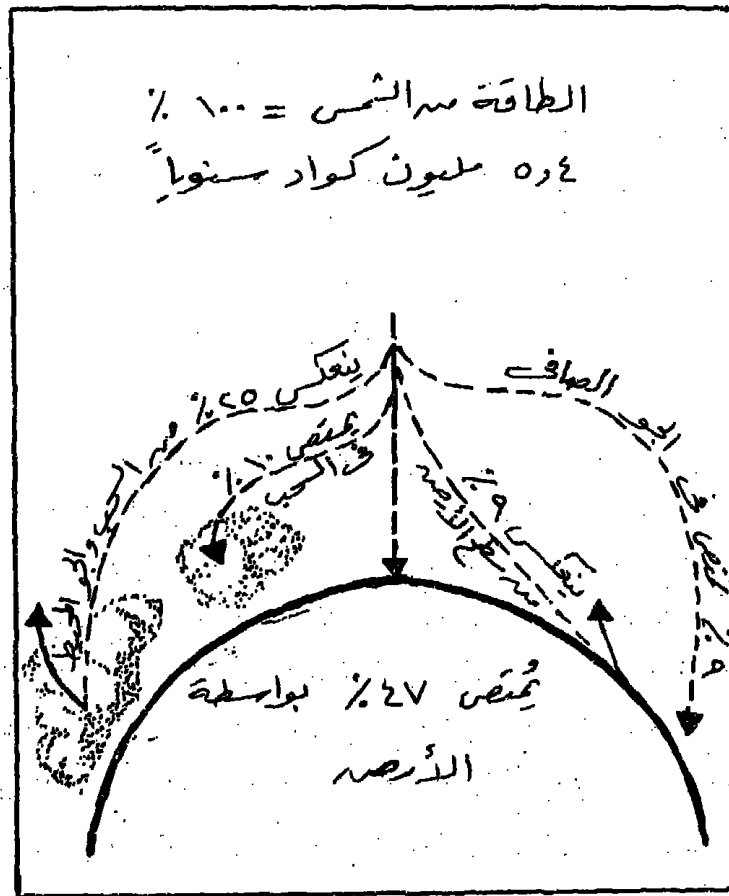 الطاقة من الشمس = ١٠٠ %
٥,٤ مليون كواد سنوياً
ينعكس ٢٥% من السحب والجو المحيط
يمتص ١٠%
في السحب
ينعكس ٩%
من سطح الأرض
٩% يمتص في الجو الصافي
يُمتص ٤٧% بواسطة
الأرض